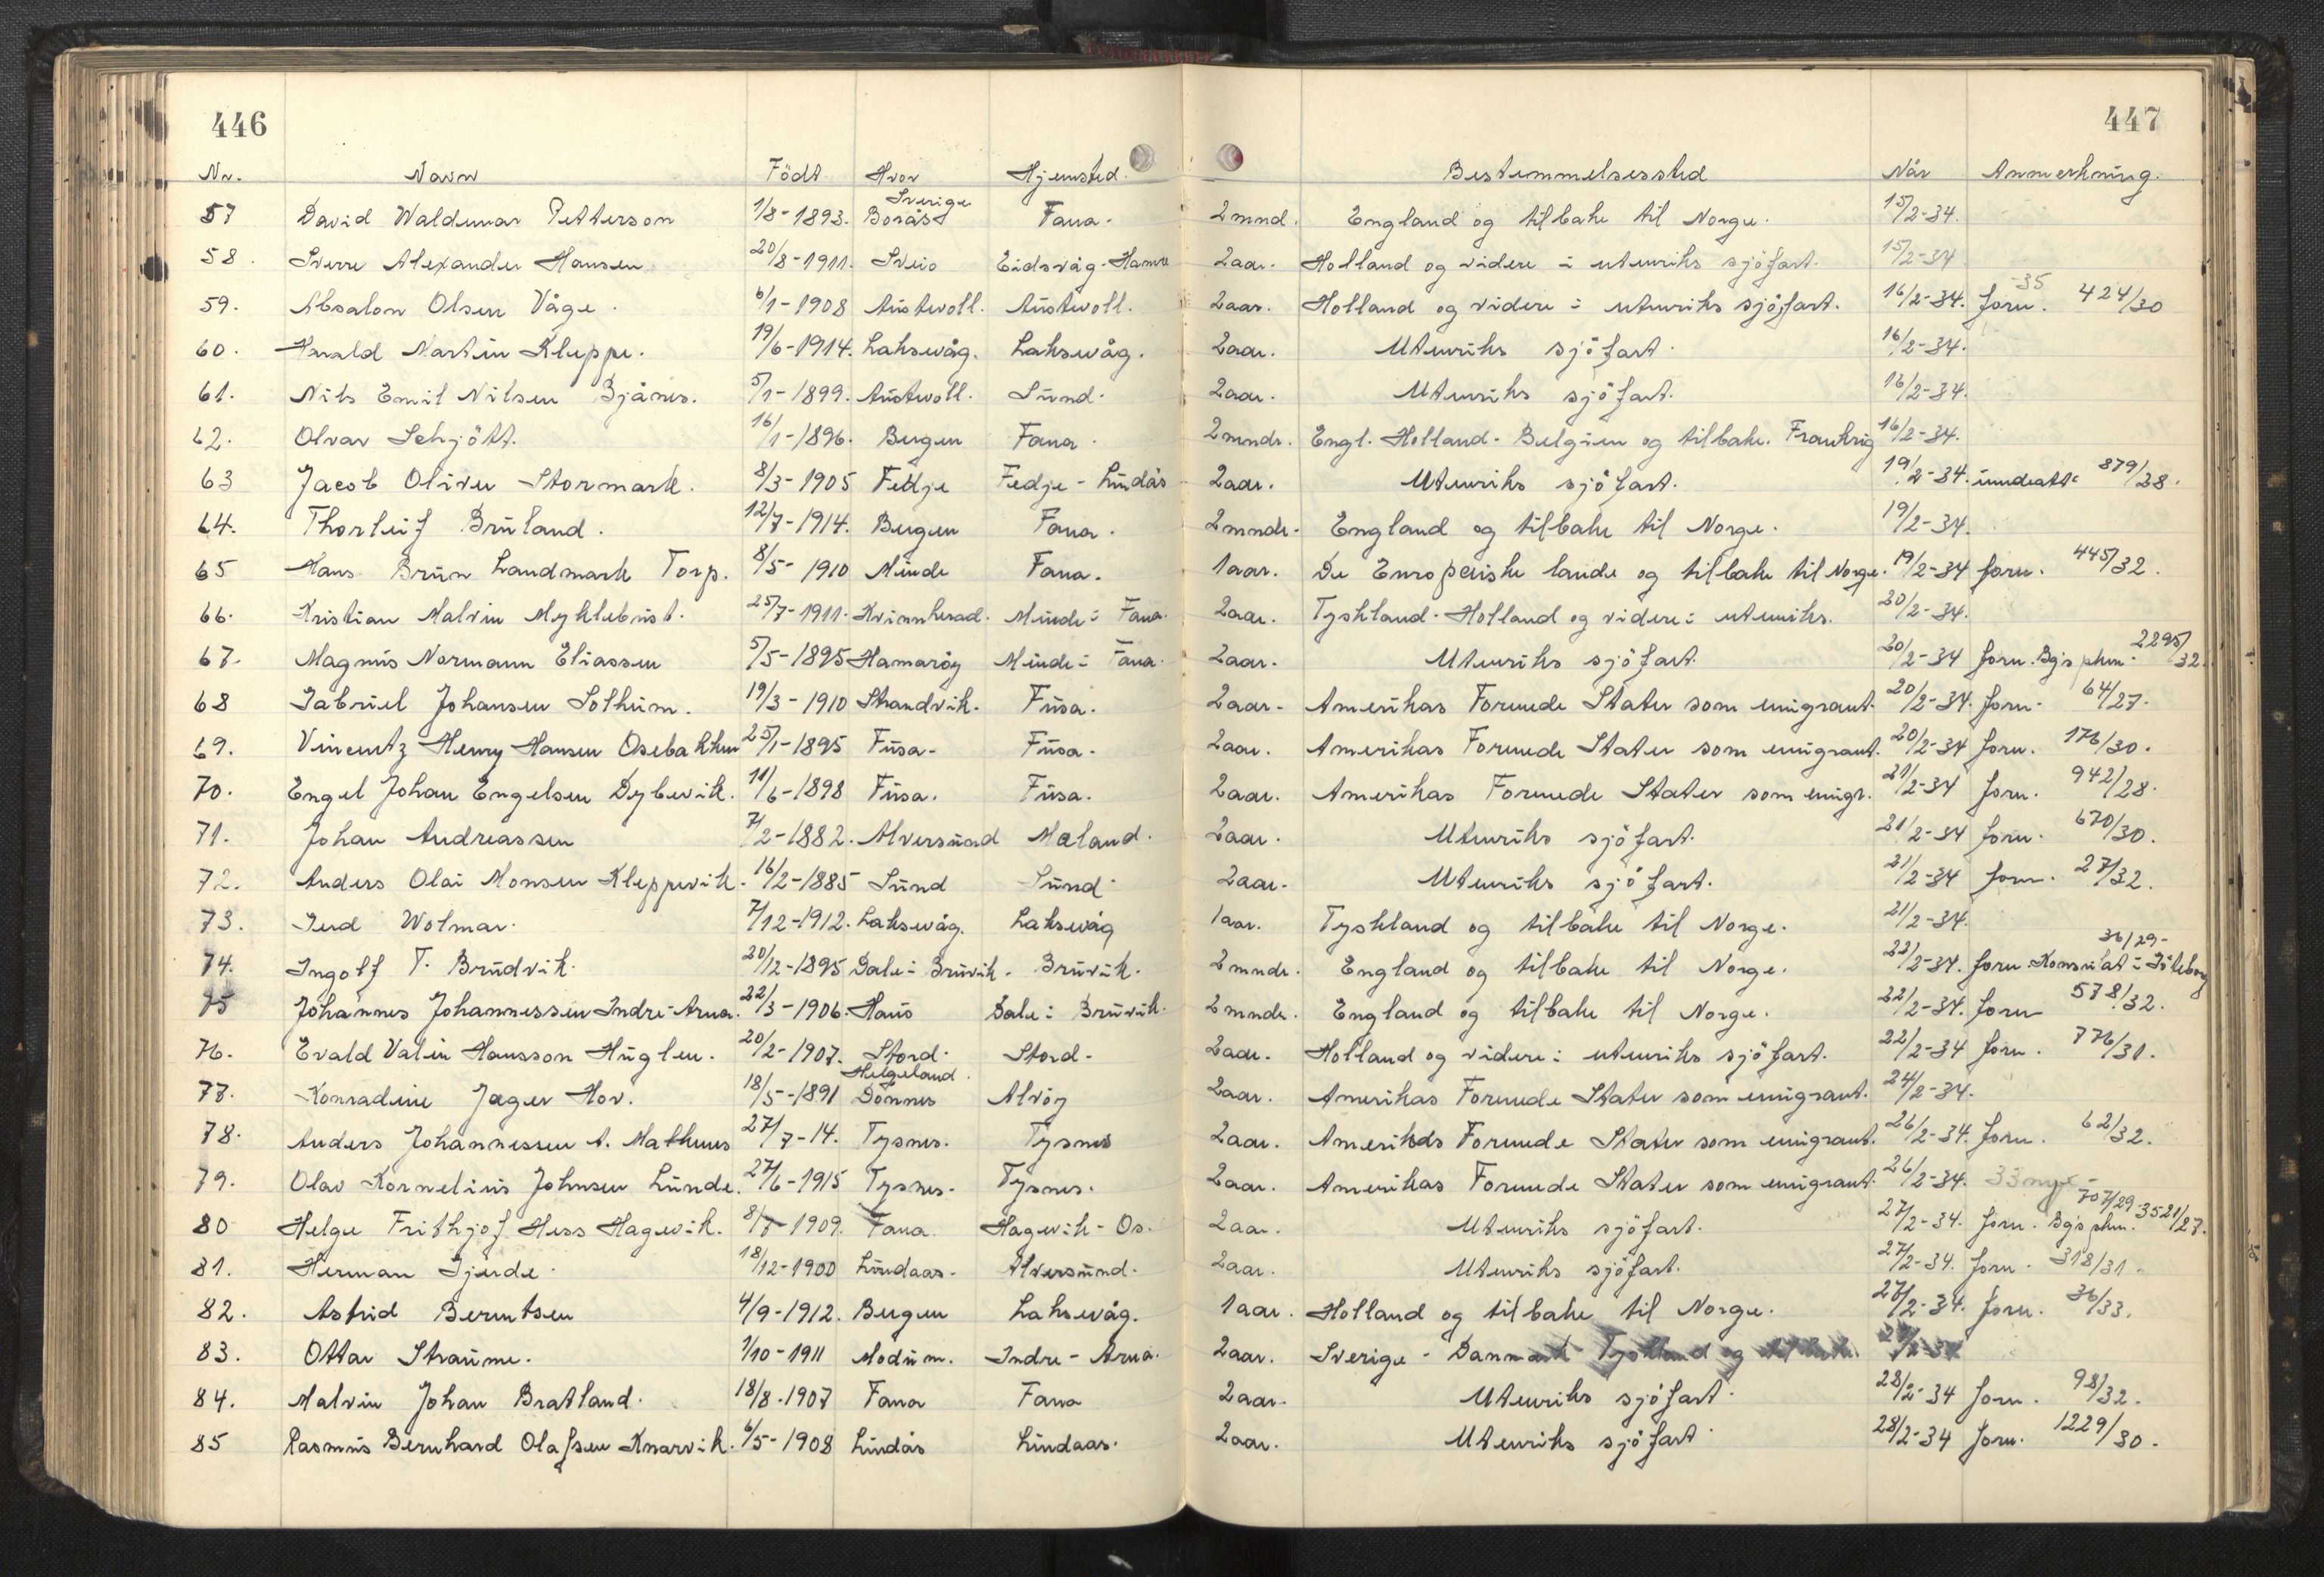 446
447
Nr. Navn Födt Hvor Hjemsted. Bestemmelsessted Når Anmerkning.
57 David Waldemar Petterson 1/8-1893. Borås Sverige Fana. 2 mnd. England og tilbake til Norge. 15/2-34.
58. Sverre Alexander Hansen 20/8-1911. Sveio Eidsvåg-Hamre 2 aar. Holland og videre i utenriks sjöfart. 15/2-34
59. Absalon Olsen Våge. 6/1-1908 Austevoll. Austevoll. 2 aar. Holland og videre i utenriks sjöfart. 16/2-34. -35 forn. 424/30
60. Harald Martin Kleppe. 19/6-1914. Laksevåg. Laksevåg. 2 aar. Utenriks sjöfart. 16/2-34.
61. Nils Emil Nilsen Bjånes. 5/1-1899. Austevoll. Sund. 2 aar. Utenriks sjöfart. 16/2-34.
62. Olvar Schjött. 16/1-1896. Bergen Fana. 2 mndr. Engl. Holland-Belgien og tilbake. Frankrig 16/2-34.
63 Jacob Oliver Stormark. 8/3-1905 Fedje Fedje-Lindås 2 aar. Utenriks sjöfart. 19/2-34. 879/28.
64. Thorleif Bruland. 12/7-1914. Bergen Fana. 2 mndr. England og tilbake til Norge. 19/2-34.
65 Hans Brun Landmark Torp. 8/5-1910 Minde Fana. 1 aar. De Europeiske lande og tilbake til Norge. 19/2-34 forn. 445/32.
66. Kristian Malvin Myklebust. 25/7-1911. Kvinnherad. Minde i Fana. 2 aar. Tyskland-Holland og videre i utenriks. 20/2-34.
67. Magnus Normann Eliassen 5/5-1895 Hamaröy Minde i Fana. 2 aar. Utenriks sjöfart. 20/2-34 forn. Bgs pkm. 2295/32.
68 Gabriel Johansen Solheim. 19/3-1910 Strandvik. Fusa. 2 aar. Amerikas Forenede Stater som emigrant. 20/2-34. forn. 64/27.
69. Vincentz Henry Hansen Osebakken 25/1-1895 Fusa. Fusa. 2 aar. Amerikas Forenede Stater som emigrant. 20/2-34 forn. 176/30.
70. Engel Johan Engelsen Dybevik. 11/6-1898 Fusa. Fusa. 2 aar. Amerikas Forenede Stater som emigr. 21/2-34 forn. 942/28.
71. Johan Andreassen 7/2-1882. Alversund Mæland. 2 aar. Utenriks sjöfart. 21/2-34 forn. 670/30.
72. Anders Olai Monsen Kleppevik. 16/2-1885 Sund Sund. 2 aar. Utenriks sjöfart. 21/2-34 forn. 27/32.
73. Gerd Wolmar. 7/12-1912. Laksevåg. Laksevåg 1 aar. Tyskland og tilbake til Norge. 21/2-34.
74. Ingolf T. Brudvik. 20/12-1895 Dale i Bruvik. Bruvik. 2 mndr. England og tilbake til Norge. 22/2-34. forn. Konsulat i Göteborg 36/29-
75 Johannes Johannessen Indre-Arna. 22/3-1906. Haus Dale i Bruvik. 2 mndr. England og tilbake til Norge. 22/2-34. forn 578/32.
76. Evald Valen Hansson Huglen. 20/2-1907. Stord. Stord. 2 aar. Holland og videre i utenriks sjöfart. 22/2-34 forn. 776/31.
77. Konradine Jæger Hov. 18/5-1891 Helgeland. Dönnes Alvöy 2 aar. Amerikas Forenede Stater som emigrant. 24/2-34.
78. Anders Johannessen A. Mathines 27/7-14. Tysnes. Tysnes 2 aar. Amerikas Forenede Stater som emigrant. 26/2-34. forn. 62/32.
79. Olav Kornelius Johnsen Lunde. 27/6-1915 Tysnes. Tysnes. 2 aar. Amerikas Forenede Stater som emigrant. 26/2-34. 33 nye
80 Helge Frithjof Hess Hagevik. 8/7-1909. Fana Hagevik-Os. 2 aar. Utenriks sjöfart. 27/2-34. forn. Bgs pkm. 707/29 3521/27.
81. Herman Gjerde. 18/12-1900 Lindaas. Alversund. 2 aar. Utenriks sjöfart. 27/2-34. forn. 318/31.
82. Astrid Berntsen 4/9-1912. Bergen Laksevåg. 1 aar. Holland og tilbake til Norge. 27/2-34. forn. 36/33.
83. Ottar Straume. 1/10-1911 Modum. Indre-Arna. 2 aar. Sverige-Danmark Tyskland og
84. Malvin Johan Bratland. 18/8-1907 Fana Fana 2 aar. Utenriks sjöfart. 28/2-34 forn. 98/32.
85 Rasmus Bernhard Olafsen Knarvik. 6/5-1908 Lindås Lindaas. 2 aar. Utenriks sjöfart. 28/2-34 forn. 1229/30.